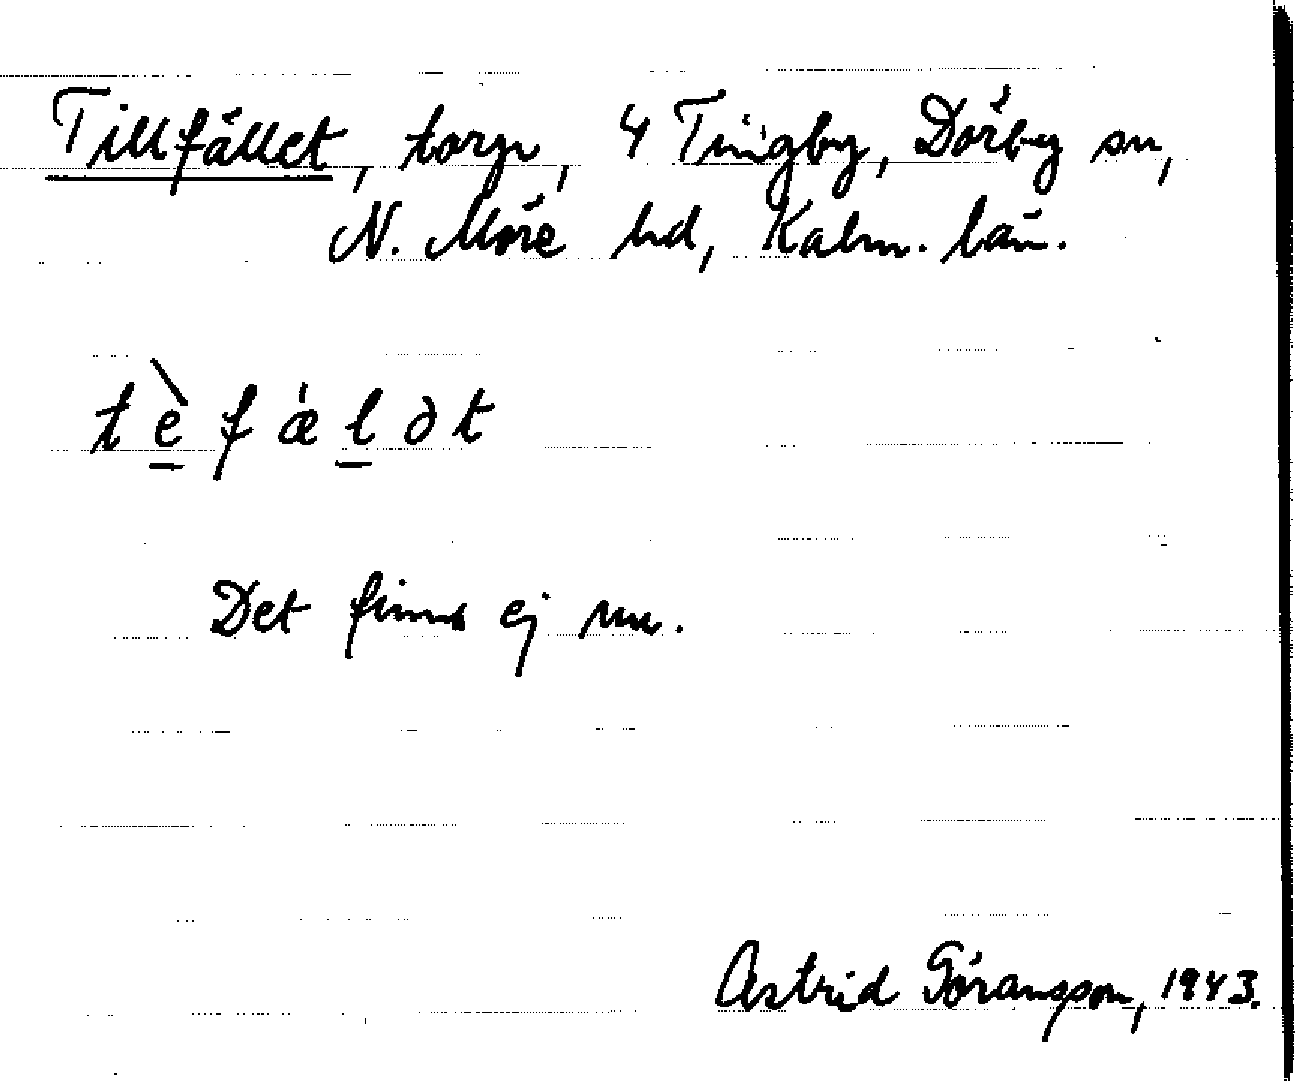 Tillfället, torp, 4 Tingby, Dörby sn,
N. Möre hd, Kalm. län.
t è f æ l ə t
Det finns ej nu.
Astrid Göransson, 1943.